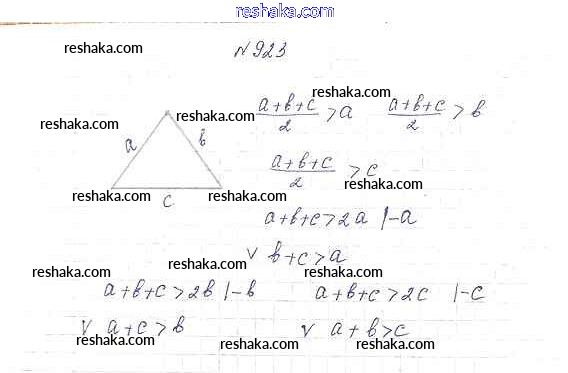 reshaka.com
reshaka.com
№923
reshaka.com
reshaka.com
reshaka.com
a
b
c
(a+b+c)/2 > a (a+b+c)/2 > b
reshaka.com
reshaka.com
(a+b+c)/2 > c
reshaka.com
a+b+c>2a |-a
v b+c>a
reshaka.com
reshaka.com
reshaka.com
a+b+c>2b |-b a+b+c>2c |-c
v a+c>b v a+b>c
reshaka.com
reshaka.com